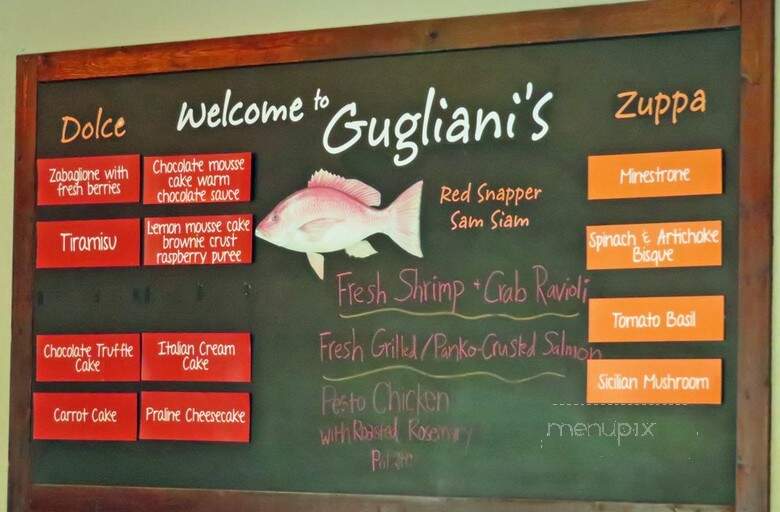 Welcome to
Gugliani's
Dolce
Zabaglione with
fresh berries
Chocolate mousse
cake warm
chocolate sauce
Tiramisu
Lemon mousse cake
brownie crust
raspberry puree
Chocolate Truffle
Cake
Italian Cream
Cake
Carrot Cake
Praline Cheesecake
Red Snapper
Sam Siam
Fresh Shrimp + Crab Ravioli
Fresh Grilled/Panko-Crusted Salmon
Pesto Chicken
with Roasted Rosemary
Zuppa
Minestrone
Spinach & Artichoke
Bisque
Tomato Basil
Sicilian Mushroom
menupix